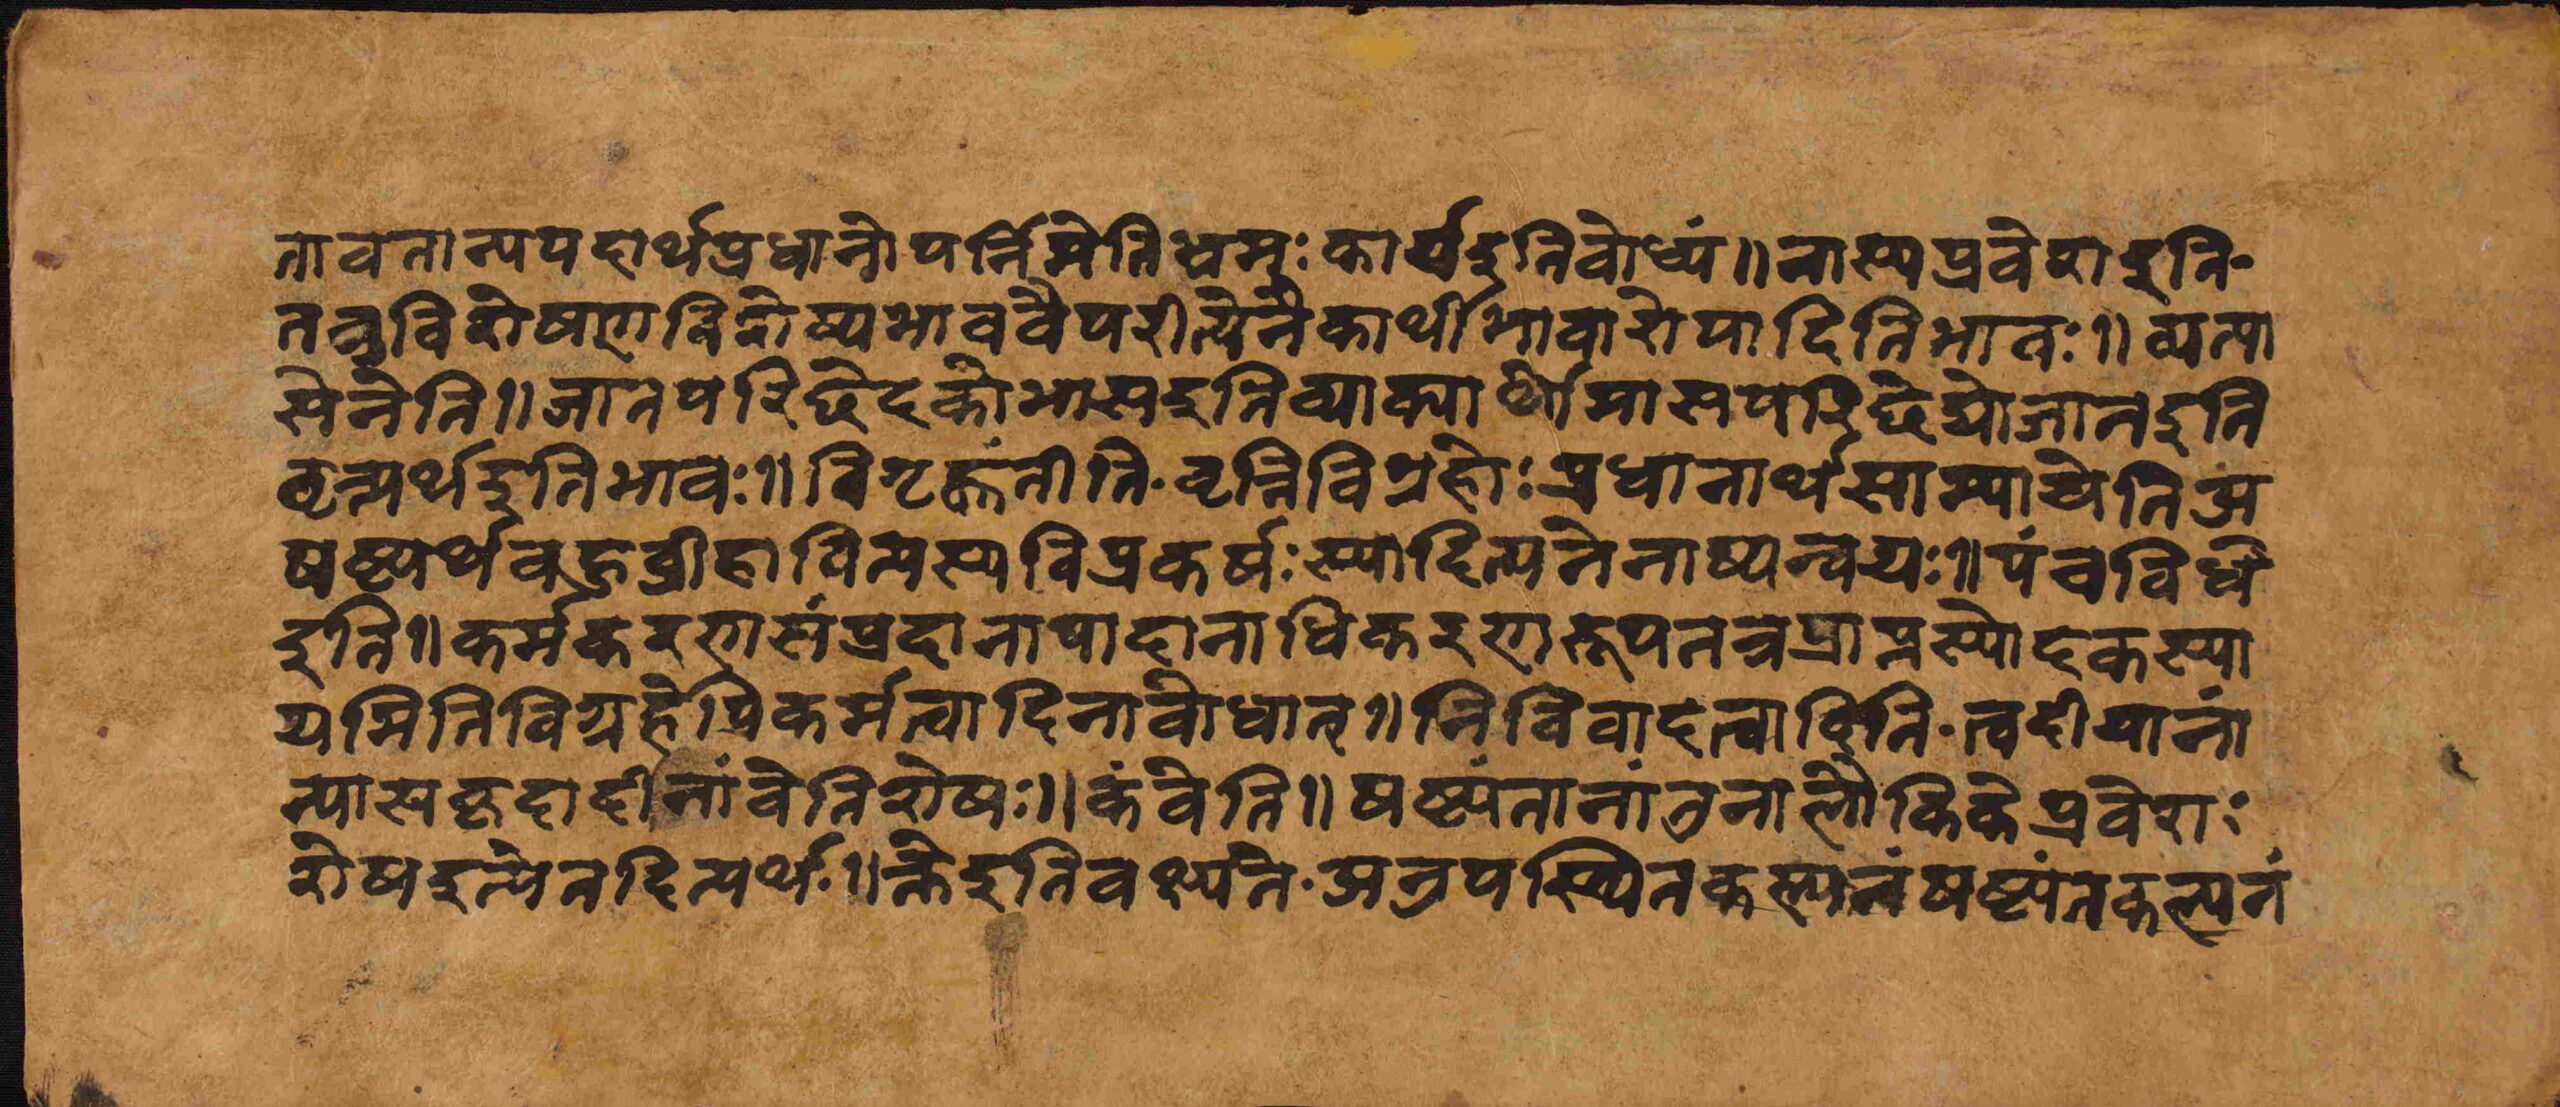 तावतान्यपदार्थप्रधानोपर्निमेतिभ्रमः कार्यइतिबोध्यं॥ नास्यप्रवेशइति॰
तत्रविशेषणविशेष्यभाववैपरीत्येनैकार्थीभावारोपादितिभावः॥ व्यत्या
सेनेति॥ जातपरिछेदकोमासइतिव्याक्यार्थोमासपरिछेद्योजातइति
वृत्यर्थइतिभावः॥ विगृह्णंतीति॰ वृत्तिविग्रहोः प्रधानार्थसाम्यायेतिअ
षष्ठ्यर्थबहुव्रीहावित्यस्यविप्रकर्षः स्यादित्यनेनाप्यन्वयः॥ पंचविधे
इति॥ कर्मकरणसंप्रदानापादानाधिकरणरूपतत्रप्राप्तस्योदकस्या
यमितिविग्रहेपिकर्मत्वादिनाबोधात्॥ निविवादत्वादिति॰ त्वदीयानां
न्यासकृदादीनांवेतिशेषः॥ कंवेति॥ षष्ठ्यंतानांतुनालौकिकेप्रवेशः
शेषइत्येतदित्यर्थः॥ क्तेइतिवक्ष्यंत॰ अनुपस्थितकल्पनंषष्ठ्यंतकल्पनं